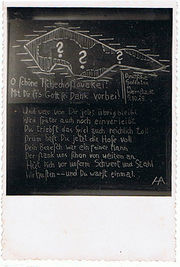 ? ? ?
O schöne Tschechoslovakei!
Mit Dir ist's Gott sei Dank vorbei!
Deutsche
Soldaten
Und was von Dir jetzt übrig bleibt
Wird später auch noch einverleibt.
Du triebst das Spiel auch reichlich toll
Drum hast Du jetzt die Hose voll
Dein Benesch war ein feiner Mann,
Der stank uns schon von weitem an.
Hältst Dich vor unsern Schwert und Stahl
Wir kusten --- und Du warst einmal.
HA